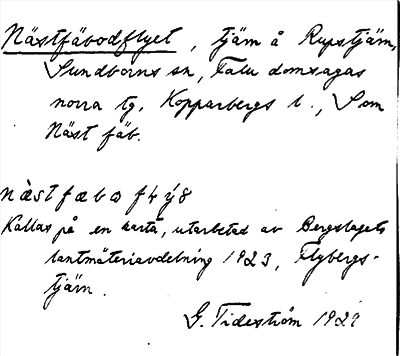 Nästfäbodflyet, tjärn å Rupstjärn,
Sundborns sn, Falu domsagas
norra tg, Kopparbergs l., S om
Näst fäb.
Kallas på en karta, utarbetad av Bergslagets
lantmäteriavdelning 1923, Flybergs-
tjärn.
G. Tideström 1929